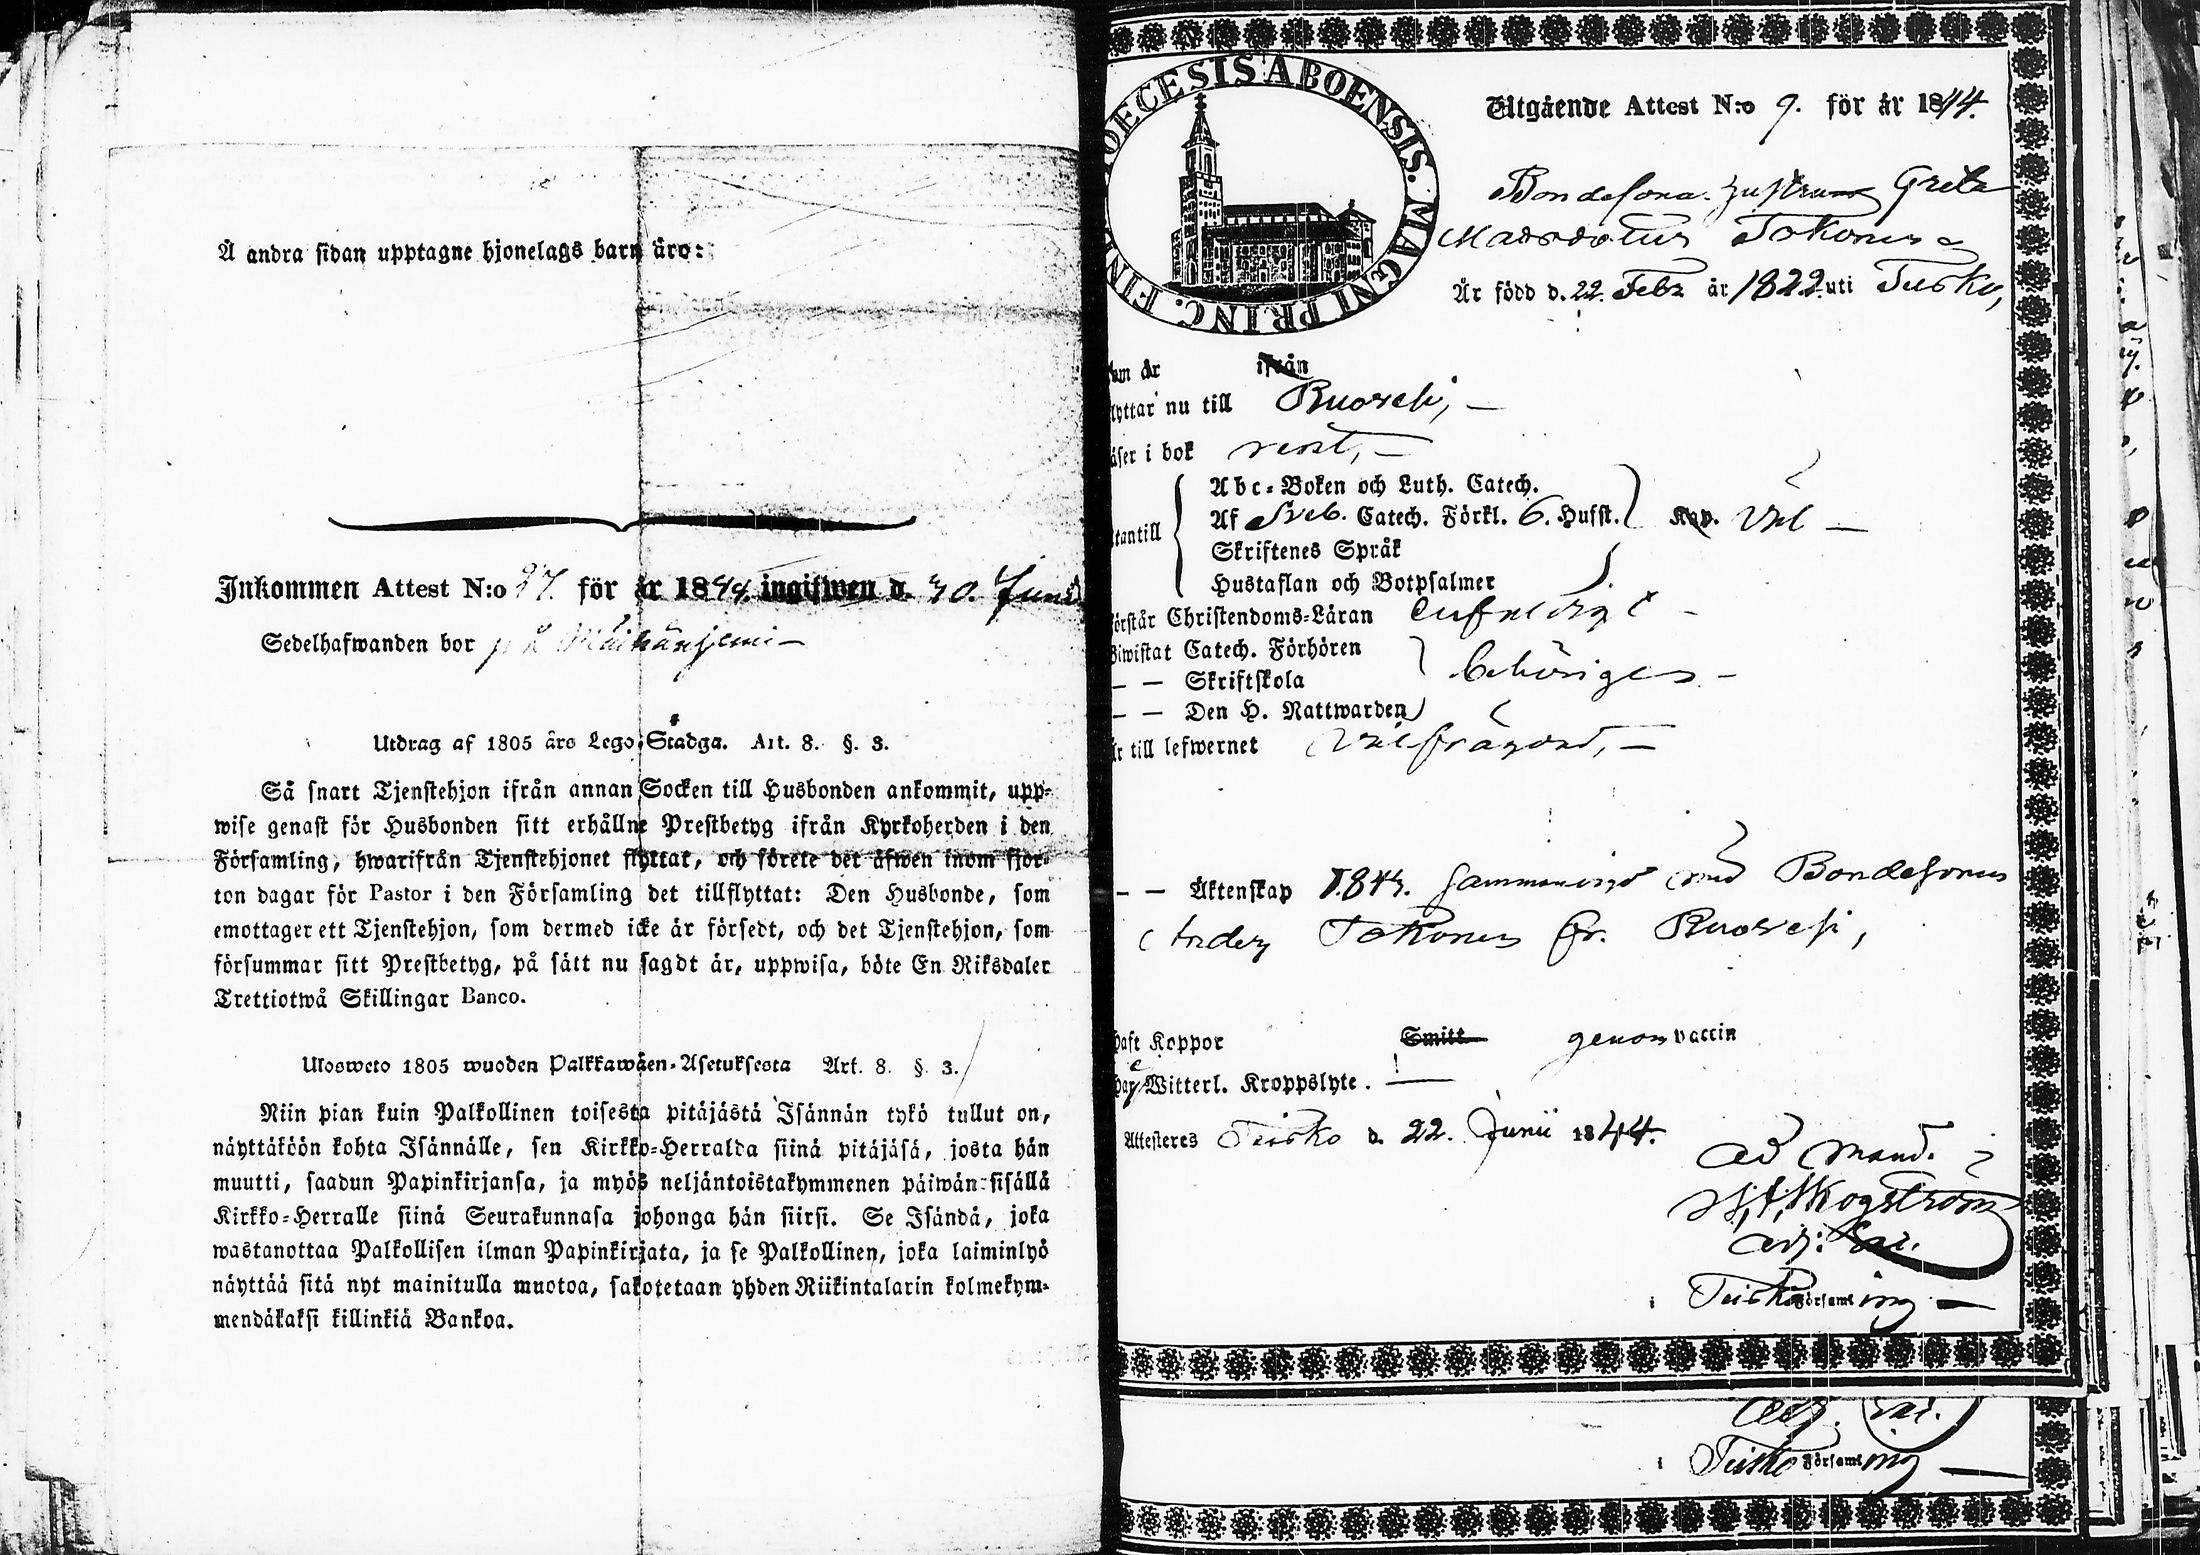 Å andra sidan upptagne hjonelags barn äro:
Inkommen Attest N:o 27. för år 1844. ingifwen d. 30. Juni
Sedelhafwanden bor på
Utdrag af 1805 års Lego-Stadga. Art. 8. §. 3.
Så snart Tjenstehjon ifrån annan Socken till Husbonden ankommit, upp-
wise genast för Husbonden sitt erhållne Prestbetyg ifrån Kyrkoherden i den
Församling, hwarifrån Tjenstehjonet flyttat, och förete det äfwen inom fjor-
ton dagar för Pastor i den Församling det tillflyttat: Den Husbonde, som
emottager ett Tjenstehjon, som dermed icke är försedt, och det Tjenstehjon, som
försummar sitt Prestbetyg, på sätt nu sagdt är, uppwisa, böte En Riksdaler
Trettiotwå Skillingar Banco.
Ulosweto 1805 wuoden Palkkawäen-Asetuksesta Art. 8. §. 3.
Niin pian kuin Palkollinen toisesta pitäjästä Isännän tykö tullut on,
näyttäköön kohta Isännälle, sen Kirkko-Herralda siinä pitäjäsä, josta hän
muutti, saadun Papinkirjansa, ja myös neljäntoistakymmenen päiwän sisällä
Kirkko-Herralle siinä Seurakunnasa johonga hän siirsi. Se Isändä, joka
wastanottaa Palkollisen ilman Papinkirjata, ja se Palkollinen, joka laiminlyö
näyttää sitä nyt mainitulla muotoa, sakotetaan yhden Riikintalarin kolmekym-
mendäkaksi killinkiä Bankoa.
DIOECESIS ABOENSIS. MAGNI PRINC. FIN
Utgående Attest N:o 9. för år 1844.
Bondesona hustrun Greta
Matsdotter Tokonen
Är född d. 22. Febr år 1822 uti Teisko,
om är ifrån
lyttar nu till Ruovesi, —
äser i bok rent, —
tantill
Abc-Boken och Luth. Catech.
Af Sveb. Catech. Förkl. 6. Hufst. Kap. väl —
Skriftenes Språk
Hustaflan och Botpsalmer
örstår Christendoms-Läran enfaldigt —
Biwistat Catech. Förhören
— — Skriftskola behörigen —
— — Den H. Nattwarden
är till lefwernet välfrägdad, —
— — Äktenskap 1843. sammanvigd med Bondesonen
Anders Tokonen fr. Ruovesi,
haft Koppor Smitt genom vaccin
har Witterl. Kroppslyte. —
Attesteres Teisko d. 22. Junii 1844.
Ad Mand.
Skogström
adj. Sac.
i Teisko Församling —
adj. Sac.
i Teisko Församling —